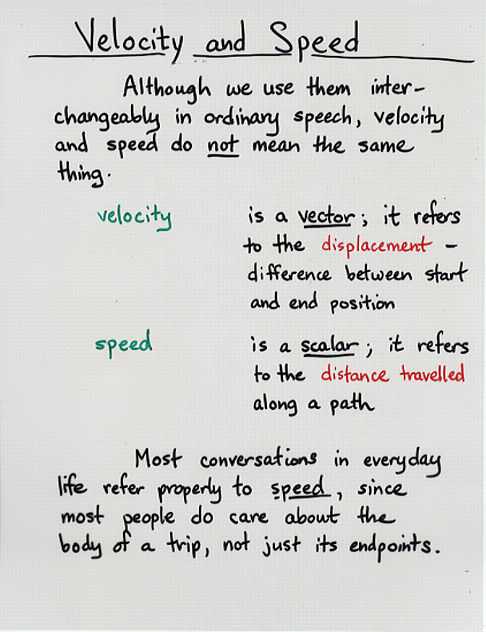 Velocity and Speed
Although we use them inter-
changeably in ordinary speech, velocity
and speed do not mean the same
thing.
velocity is a vector; it refers
to the displacement -
difference between start
and end position
speed is a scalar; it refers
to the distance travelled
along a path
Most conversations in everyday
life refer properly to speed, since
most people do care about the
body of a trip, not just its endpoints.